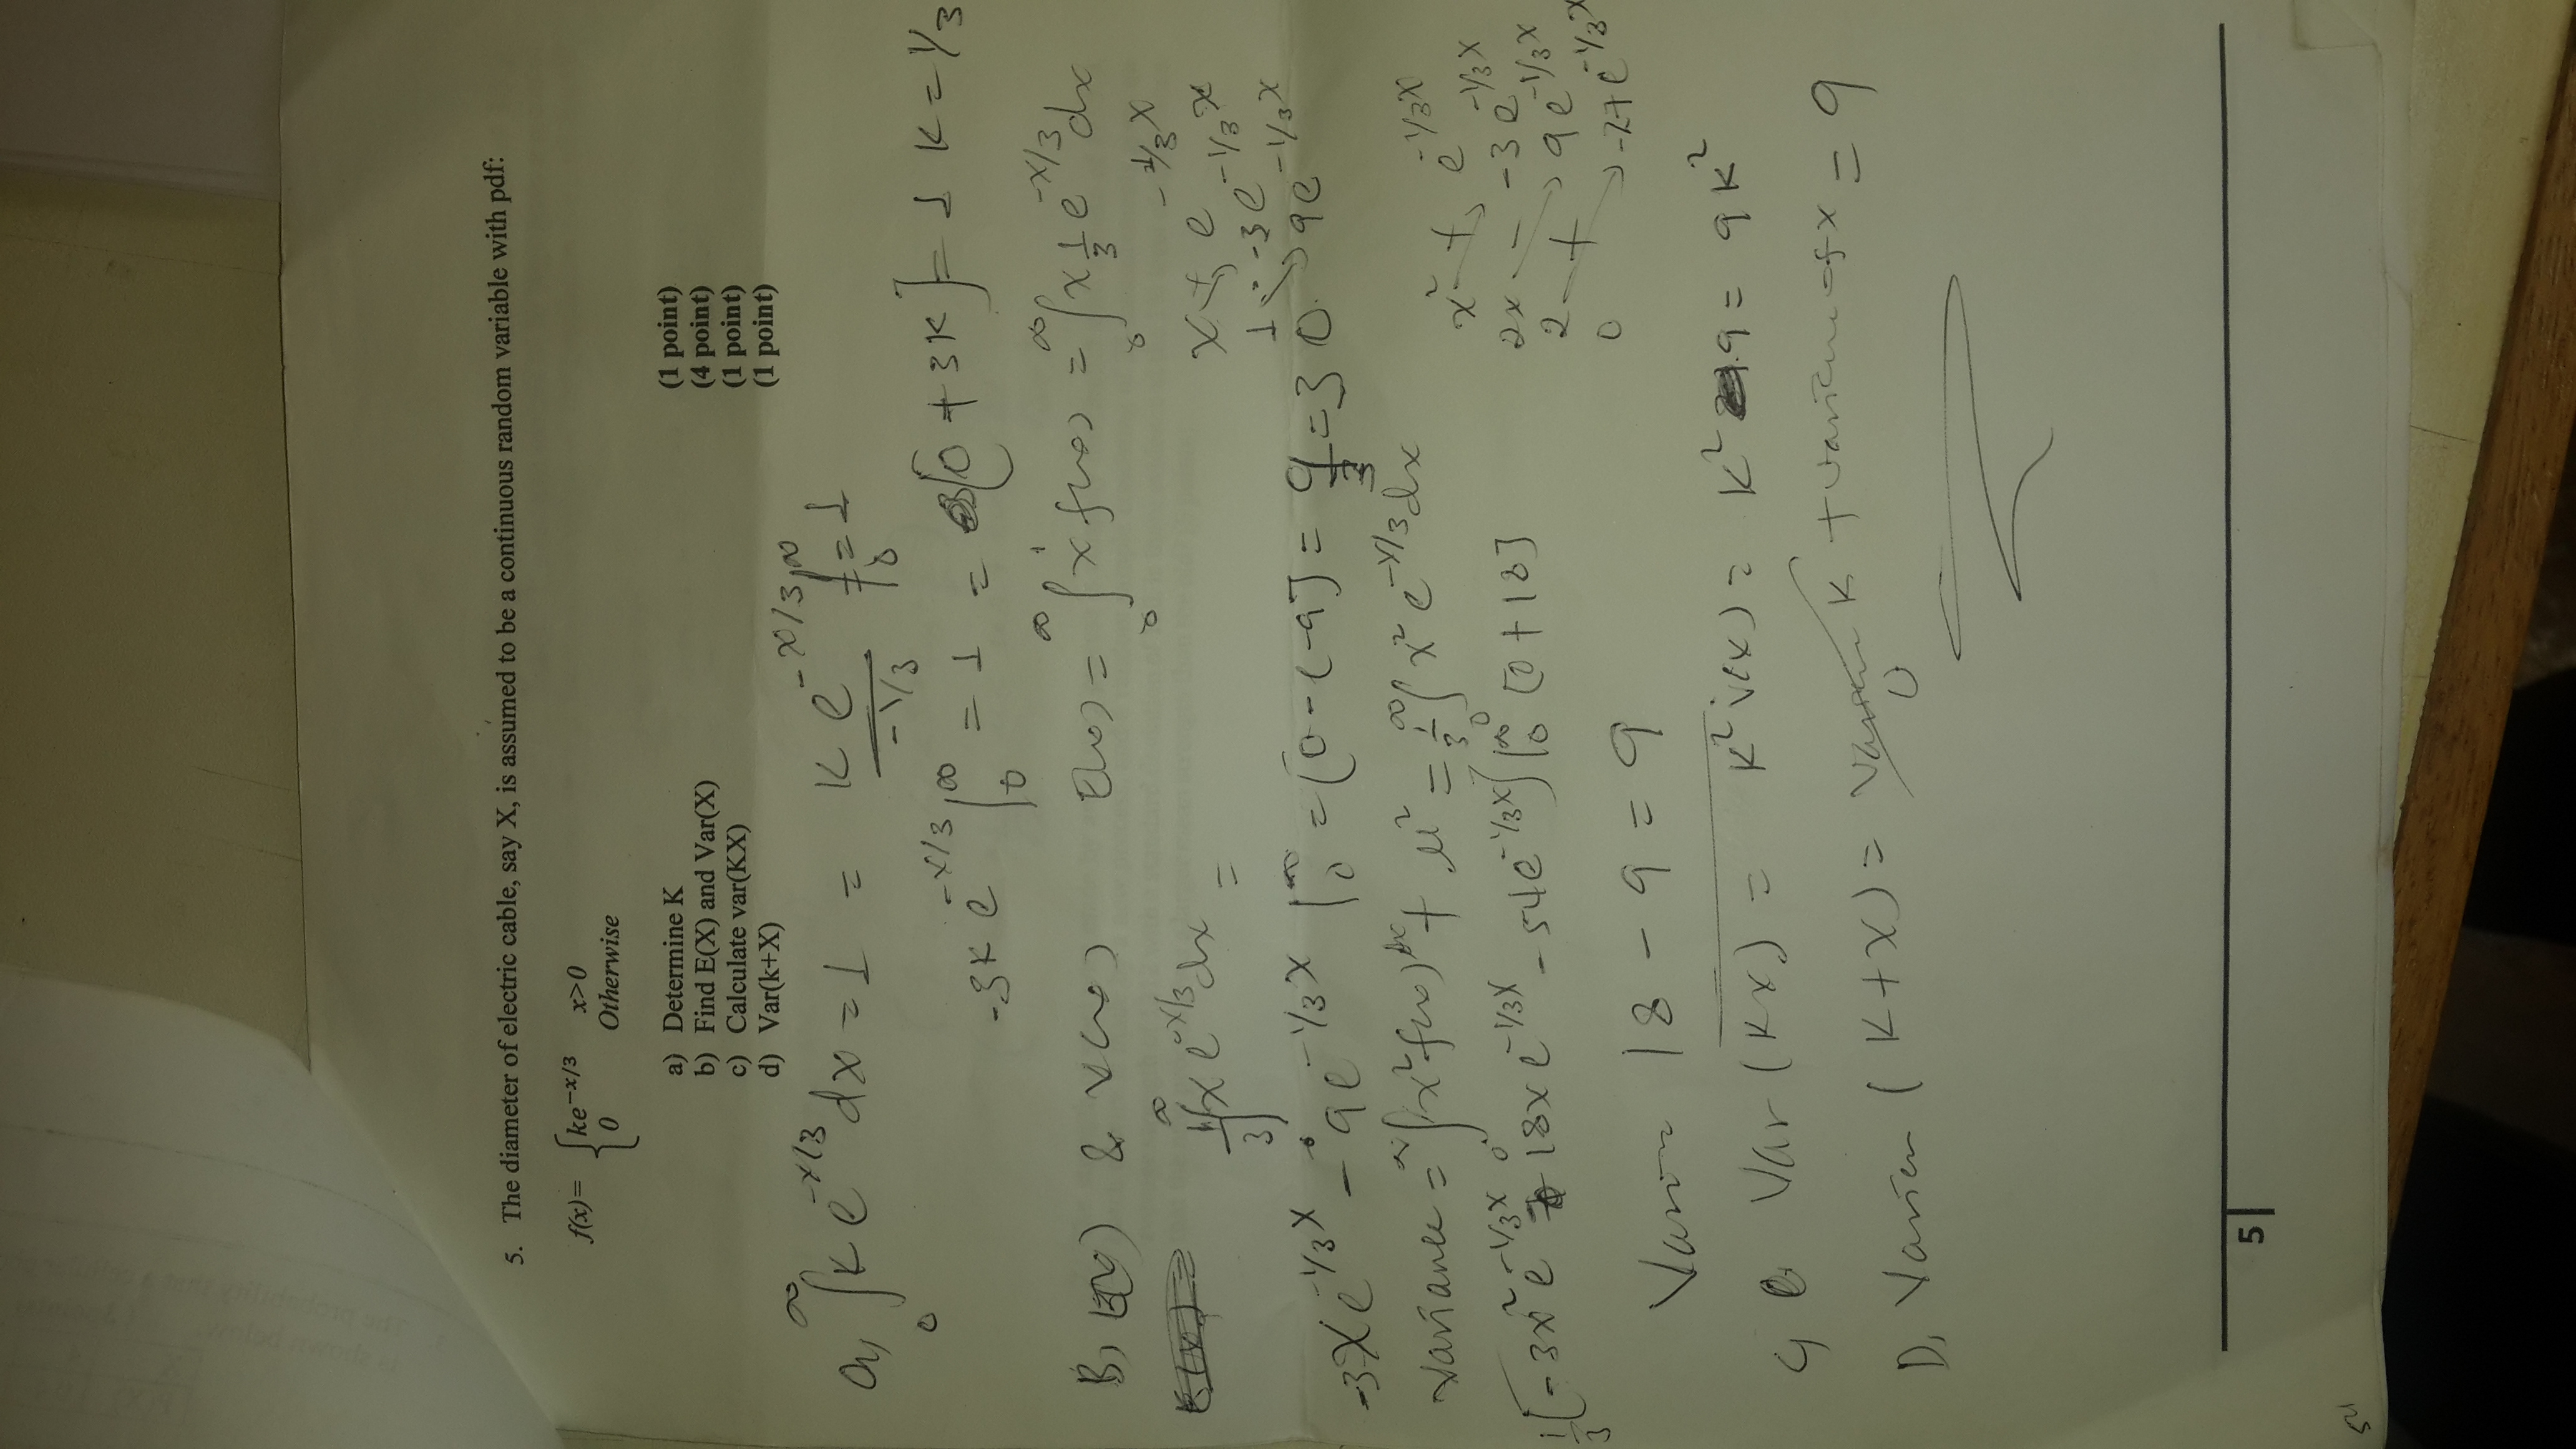 5. The diameter of electric cable, say X, is assumed to be a continuous random variable with pdf:
f(x)= { ke^{-x/3} x>0
0 Otherwise
a) Determine K (1 point)
b) Find E(X) and Var(X) (4 point)
c) Calculate var(KX) (1 point)
d) Var(k+X) (1 point)
a, ∫_0^∞ k e^{-x/3} dx = 1 = k e^{-x/3} / -1/3 |_0^∞ = 1
-3k e^{-x/3} |_0^∞ = 1 = [0 + 3k] = 1 k = 1/3
B, E(x) & v(x) E(x) = ∫_0^∞ x f(x) = ∫_0^∞ x 1/3 e^{-x/3} dx
1/3 ∫^∞ x e^{-x/3} dx =
x + e^{-1/3 x}
1 - -3e^{-1/3 x}
0 9e^{-1/3 x}
-3xe^{-1/3 x} - 9e^{-1/3 x} |_0^∞ = [0-(-9] = 9/3 = 3
Variance = ∫_0^∞ x² f(x) dx + μ² = 1/3 ∫_0^∞ x² e^{-x/3} dx
x² + e^{-1/3 x}
2x - -3e^{-1/3 x}
2 + 9e^{-1/3 x}
0 -27e^{-1/3 x}
1/3 [-3x² e^{-1/3 x} 18x e^{-1/3 x} - 54e^{-1/3 x}] |_0^∞ [0+18]
18 - 9 = 9
C, Var (kx) = k² v(x) = k² .9 = 9k²
D, (k+x) = k + = 9
5
54